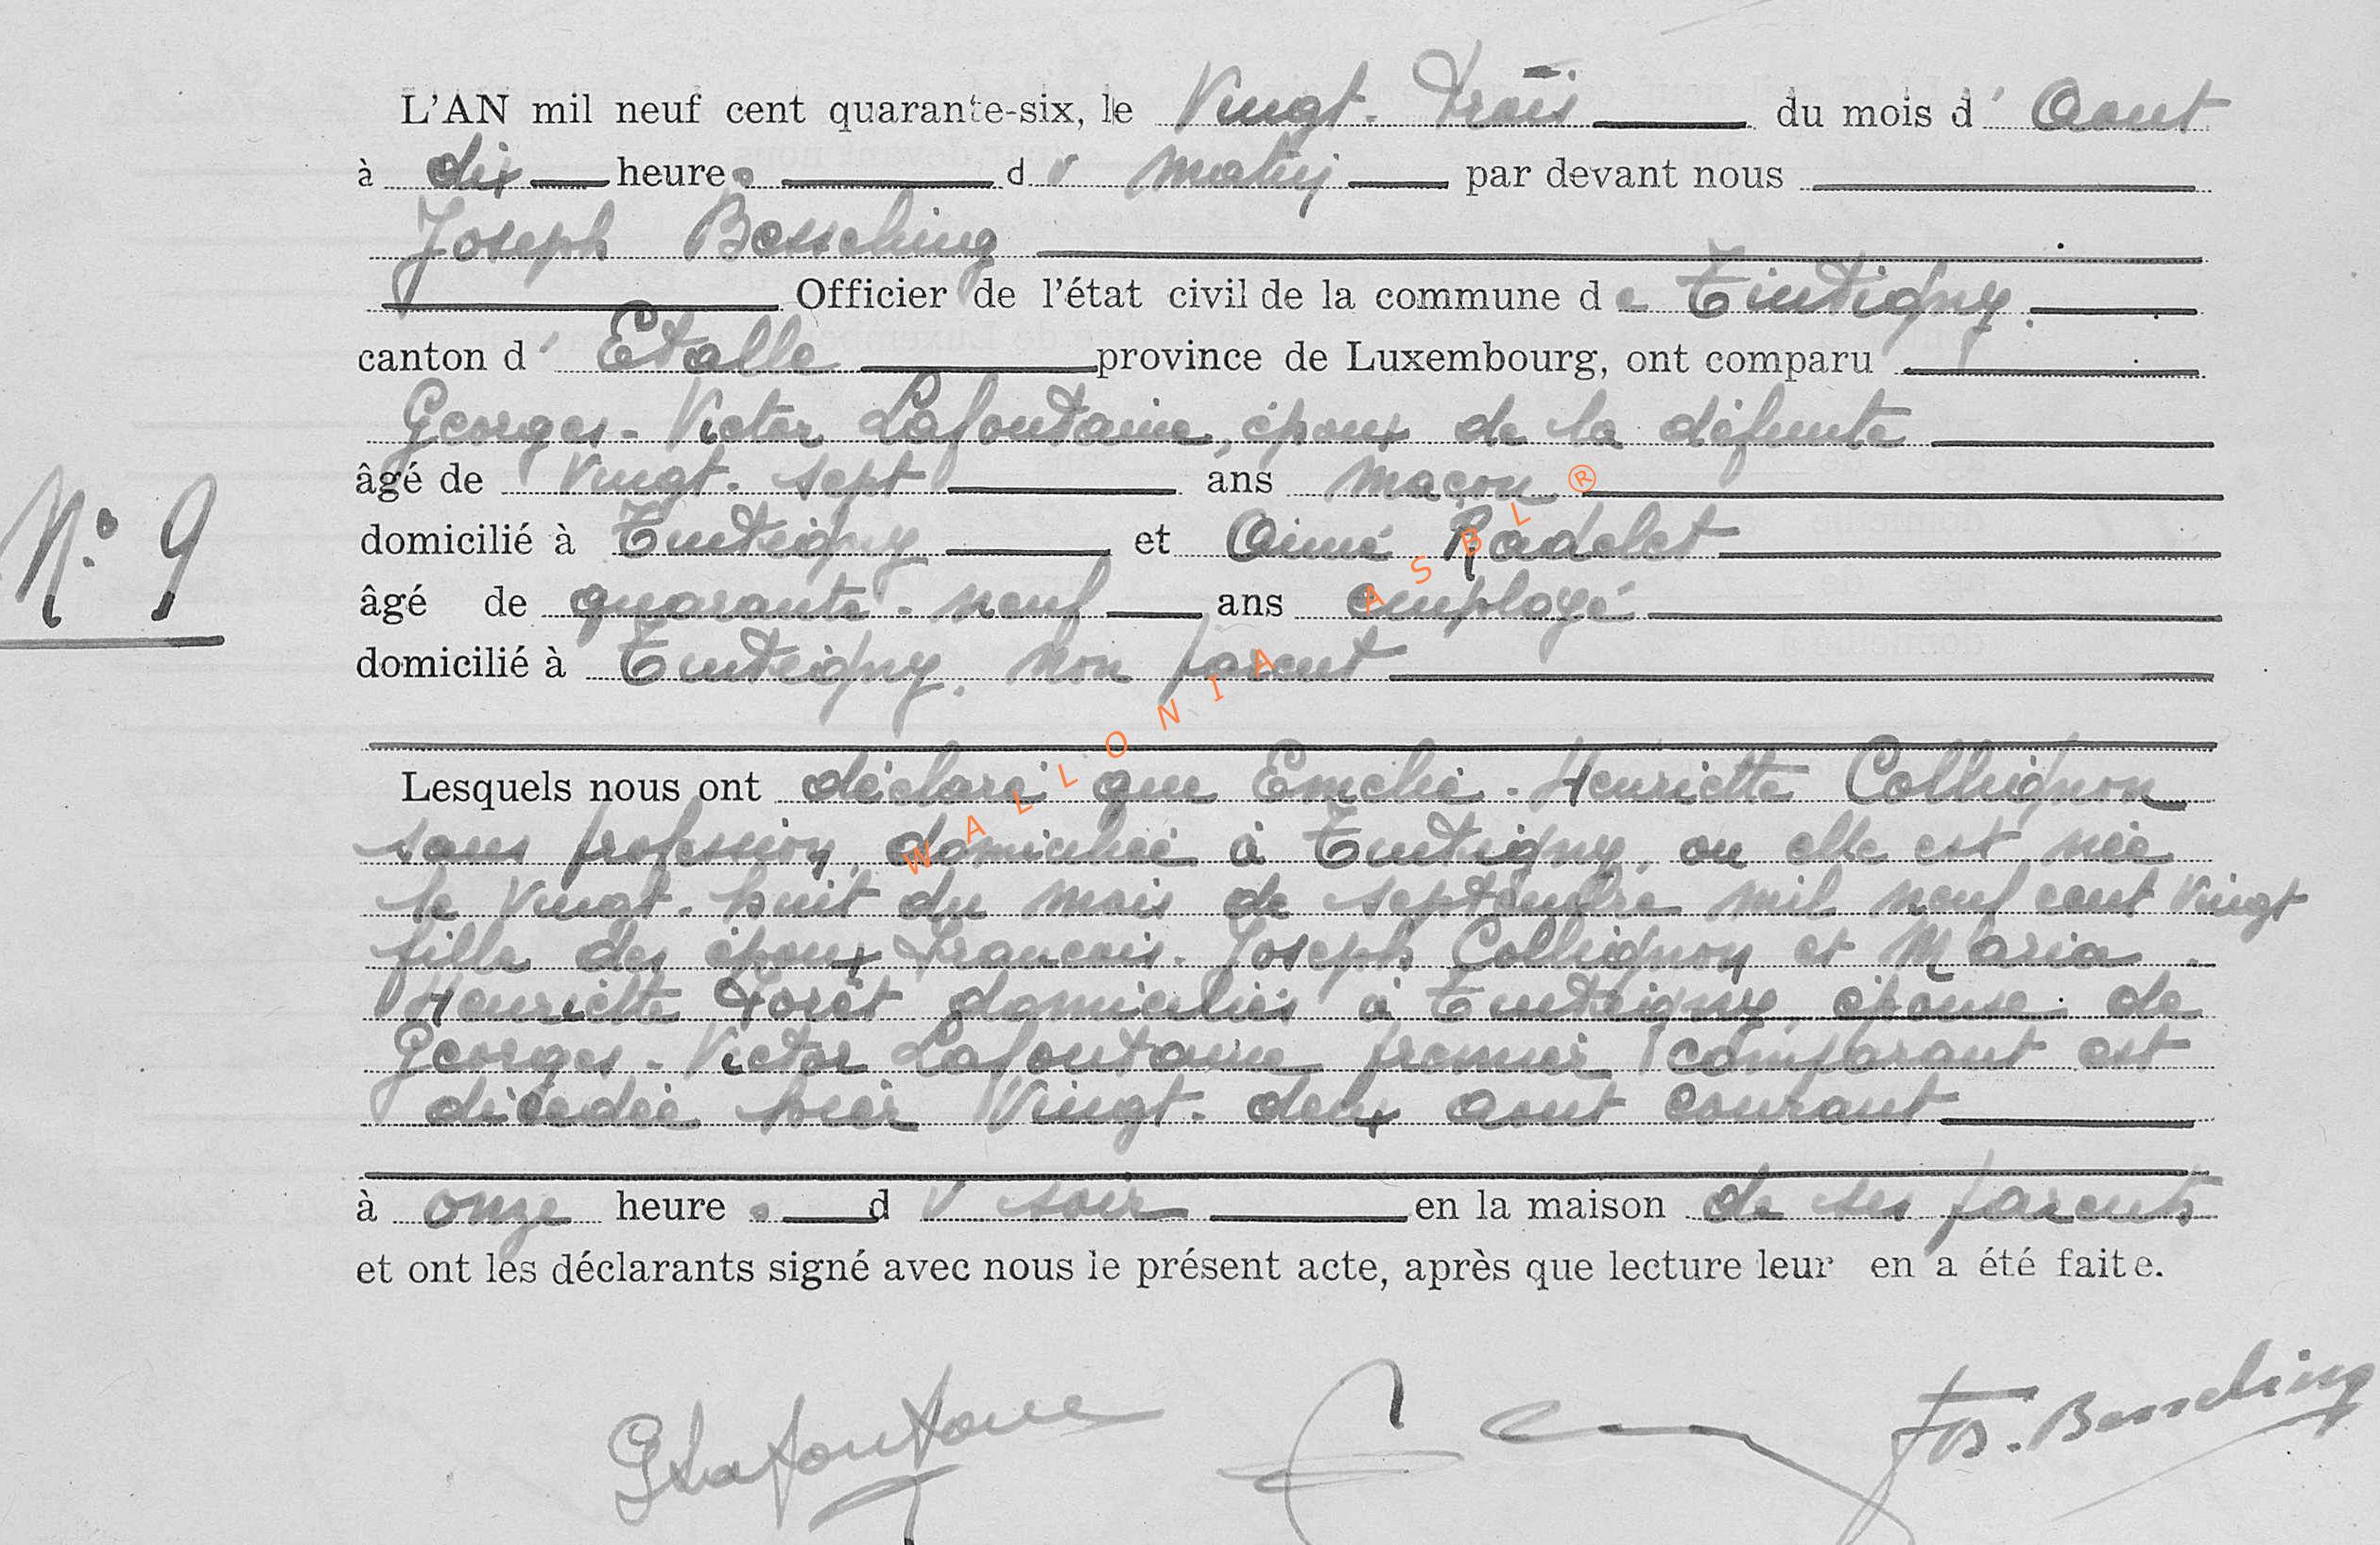 L'AN mil neuf cent quarante-six, le Vingt-trois du mois d'Aout
à dix heures du matin par devant nous
Joseph Bessching
Officier de l'état civil de la commune de Tintigny.
canton d'Etalle province de Luxembourg, ont comparu
Georges-Victor Lafontaine, époux de la défunte
âgé de Vingt-sept ans maçon
domicilié à Tintigny et Aimé Radelet
N° 9
âgé de quarante-neuf ans employé
domicilié à Tintigny. non parent
Lesquels nous ont déclaré que Emelie-Henriette Collignon
sans profession, domiciliée à Tintigny, ou elle est née
le Vingt-huit du mois de septembre mil neuf cent Vingt
fille des époux Francois-Joseph Collignon et Maria
Henriette Forêt domiciliés à Tintigny, épouse de
Georges-Victor Lafontaine premier comparant est
décédée hier Vingt-deux aout courant
à onze heures du soir en la maison de ses parents
et ont les déclarants signé avec nous le présent acte, après que lecture leur en a été faite.
GLafontaine
WALLONIA ASBL ®